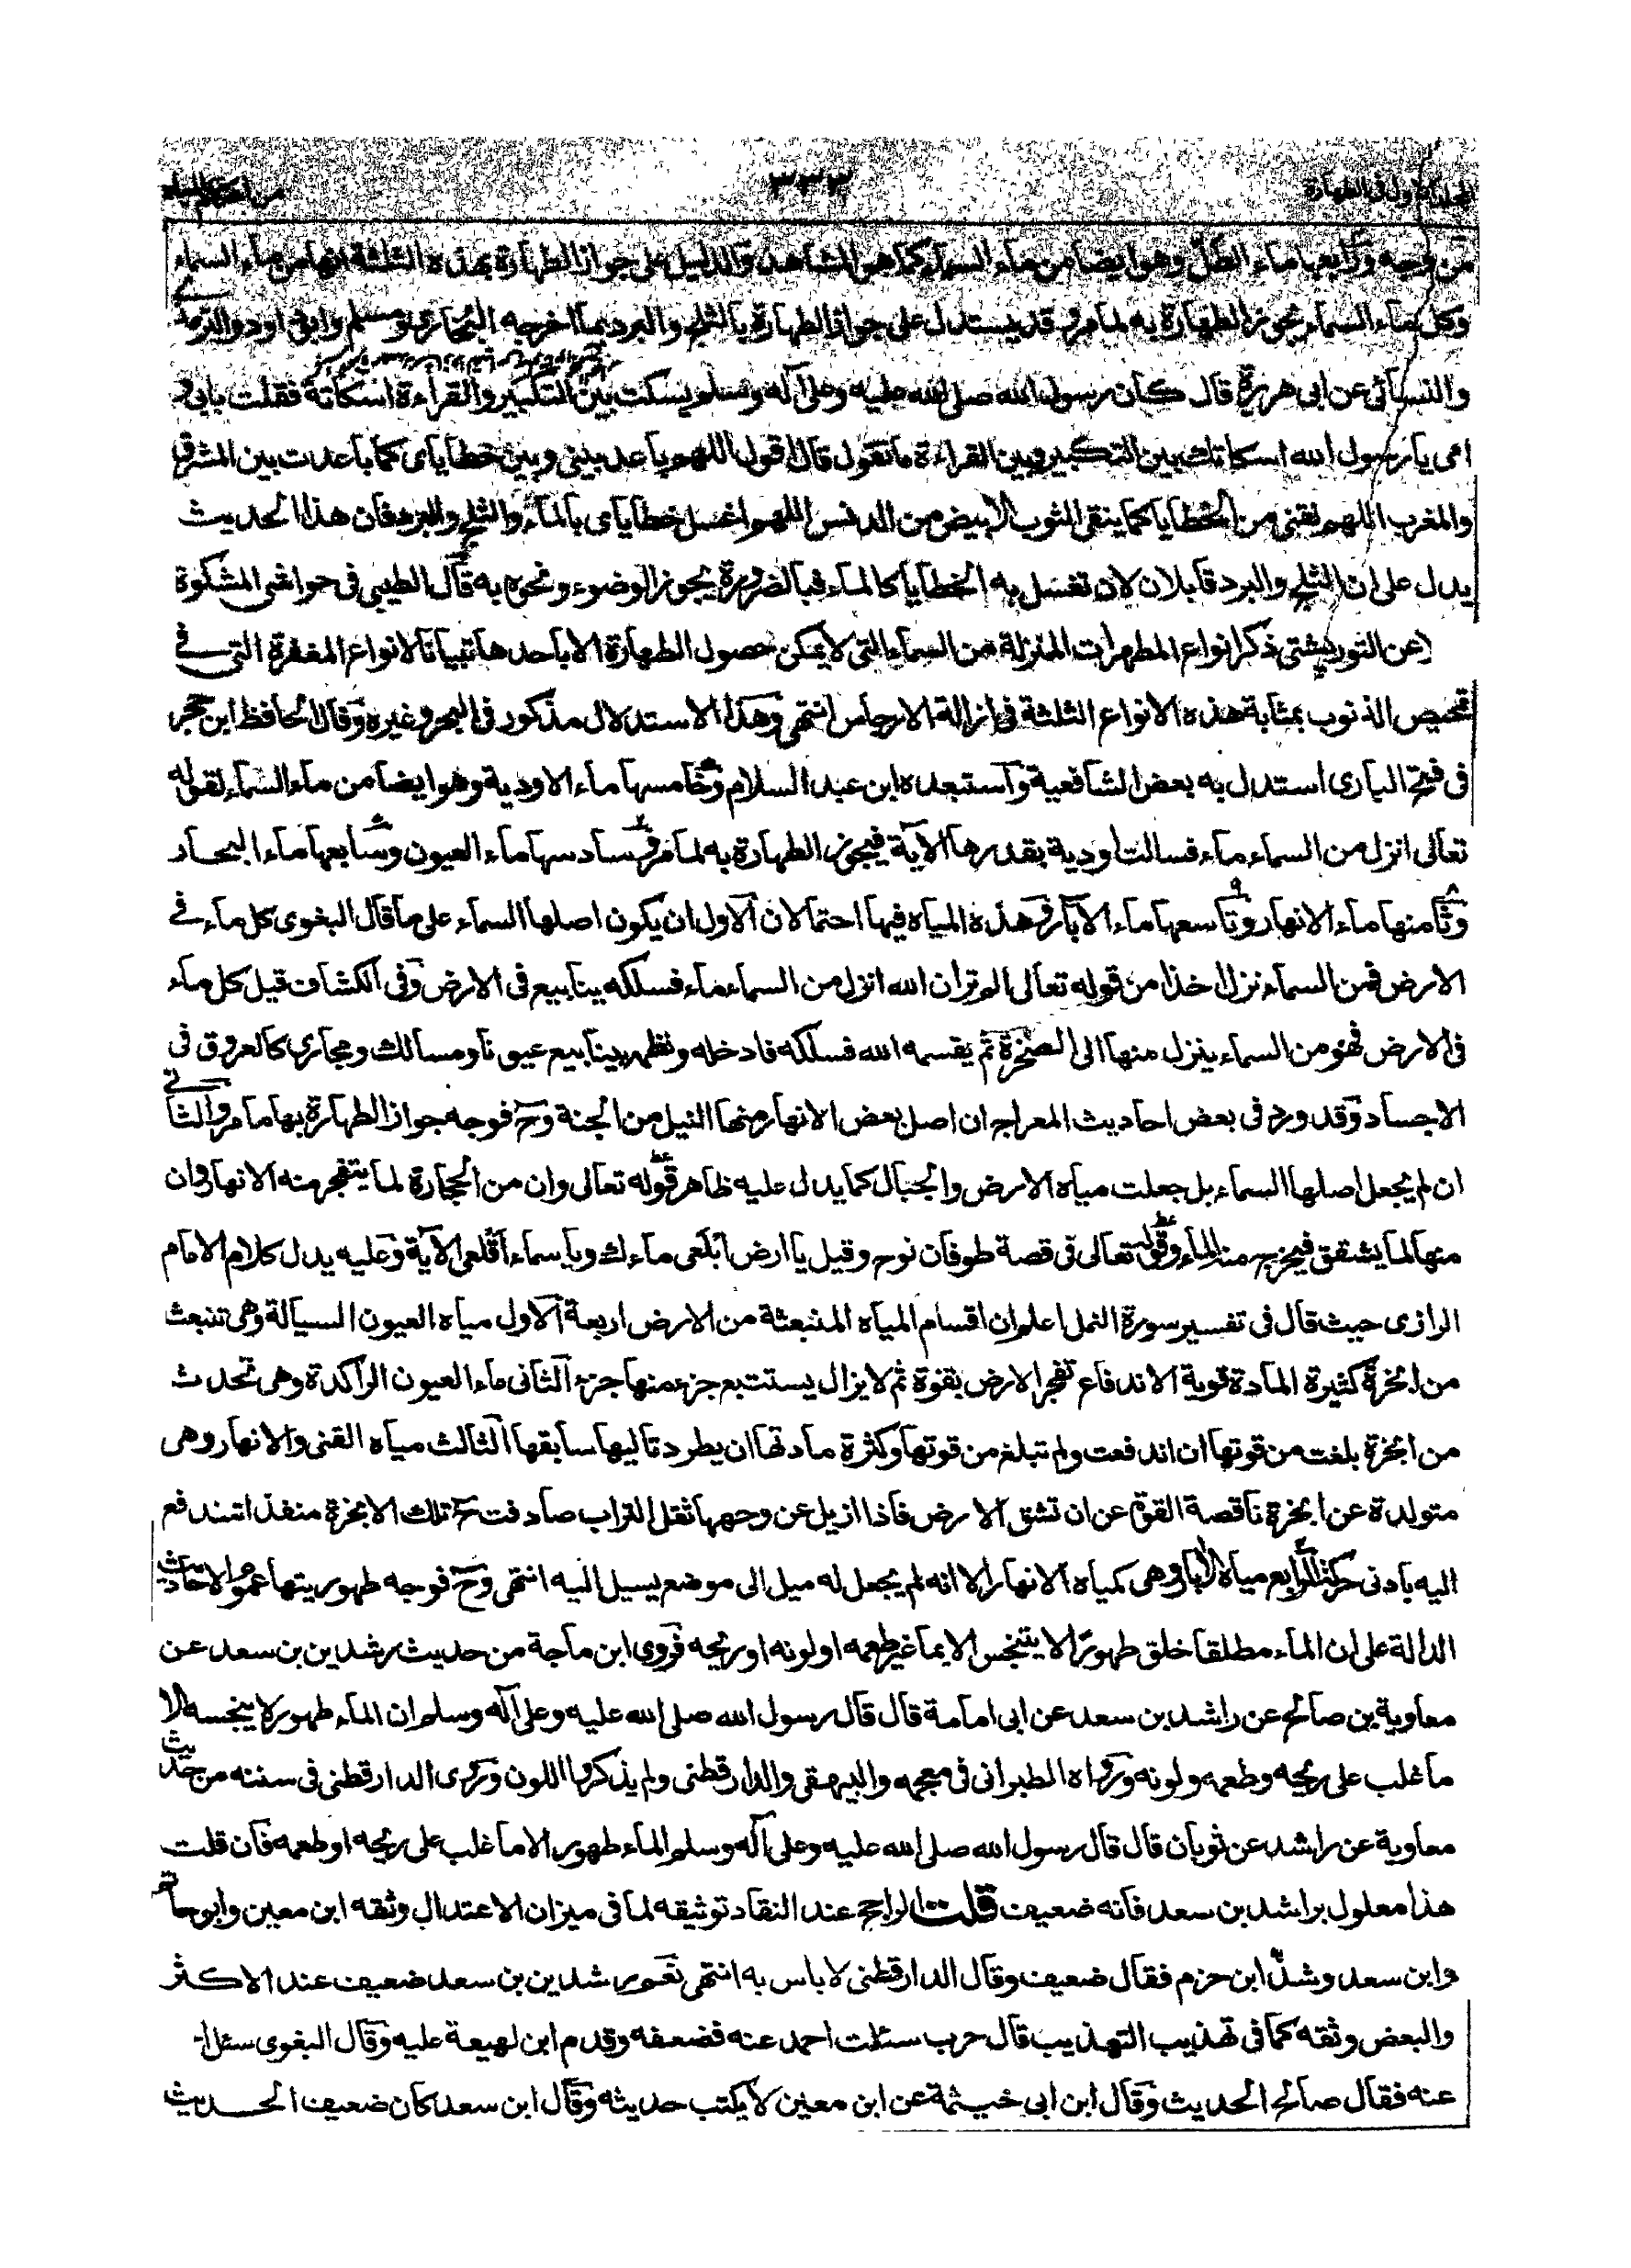 المجلد الاول فى الطهارة ٣٣٣
من وجه ورابعها ماء الطل وهو ايضا من ماء السماء كما هو المشاهد والدليل على جواز الطهارة بهذه الثلثة انها من ماء السماء
وكل ماء السماء يجوز الطهارة به لما مر وقد يستدل على جواز الطهارة بالثلج والبرد بما اخرجه البخارى ومسلم وابو داود والترمذى
والنسائى عن ابى هريرة قال كان رسول الله صلى الله عليه وعلى آله وسلم يسكت بين التكبير والقراءة اسكاتة فقلت بابى و
امى يا رسول الله اسكاتك بين التكبير وبين القراءة ما تقول قال اقول اللهم باعد بينى وبين خطاياى كما باعدت بين المشرق
والمغرب اللهم نقنى من الخطايا كما ينقى الثوب الابيض من الدنس اللهم اغسل خطاياى بالماء والثلج والبرد فان هذا الحديث
يدل على ان الثلج والبرد قابلان لان تغسل به الخطايا كالماء فبالضرورة يجوز الوضوء ونحوه به قال الطيبى فى حواشى المشكوة
عن التوربشتى ذكر انواع المطهرات المنزلة من السماء التى لا يمكن حصول الطهارة الا باحدها تبيانا لانواع المغفرة التى فى
تمحيص الذنوب بمثابة هذه الانواع الثلثة فى ازالة الارجاس انتهى وهذا الاستدلال مذكور فى البحر وغيره وقال الحافظ ابن حجر
فى فتح البارى استدل به بعض الشافعية واستبعده ابن عبد السلام وخامسها ماء الاودية وهو ايضا من ماء السماء لقوله
تعالى انزل من السماء ماء فسالت اودية بقدرها الآية فيجوز الطهارة به لما مر وسادسها ماء العيون وسابعها ماء البحار
وثامنها ماء الانهار وتاسعها ماء الآبار وهذه المياه فيها احتمالان الاول ان يكون اصلها السماء على ما قال البغوى كل ماء فى
الارض فمن السماء نزل اخذا من قوله تعالى الم تر ان الله انزل من السماء ماء فسلكه ينابيع فى الارض وفى الكشاف قيل كل ماء
فى الارض فهو من السماء ينزل منها الى الصخرة ثم يقسمه الله فسلكه فادخله ونظمه ينابيع عيونا ومسالك ومجارى كالعروق فى
الاجساد وقد ورد فى بعض احاديث المعراج ان اصل بعض الانهار منها النيل من الجنة وح فوجه جواز الطهارة بها ما مر والثانى
ان لم يجعل اصلها السماء بل جعلت مياه الارض والجبال كما يدل عليه ظاهر قوله تعالى وان من الحجارة لما يتفجر منه الانهار وان
منها لما يشقق فيخرج منه الماء وقوله تعالى فى قصة طوفان نوح وقيل يا ارض ابلعى ماءك ويا سماء اقلعى الآية وعليه يدل كلام الامام
الرازى حيث قال فى تفسير سورة النمل اعلم ان اقسام المياه المنبعثة من الارض اربعة الاول مياه العيون السيالة وهى تنبعث
من ابخرة كثيرة المادة قوية الاندفاع تفجر الارض بقوة ثم لا يزال يستتبع جزء منها جزء الثانى ماء العيون الراكدة وهى تحدث
من ابخرة بلغت من قوتها ان اندفعت ولم تبلغ من قوتها وكثرة مادتها ان يطرد تاليها سابقها الثالث مياه القنى والانهار وهى
متولدة عن ابخرة ناقصة القوة عن ان تشق الارض فاذا ازيل عن وجهها ثقل التراب صادفت ح تلك الابخرة منفذا تندفع
اليه بادنى حركة الرابع مياه الآبار وهى كمياه الانهار الا انه لم يجعل له ميل الى موضع يسيل اليه انتهى وح فوجه طهوريتها عموم الاحاديث
الدالة على ان الماء مطلقا خلق طهورا لا يتنجس الا بما غير طعمه او لونه او ريحه فروى ابن ماجة من حديث رشدين بن سعد عن
معاوية بن صالح عن راشد بن سعد عن ابى امامة قال قال رسول الله صلى الله عليه وعلى آله وسلم ان الماء طهور لا ينجسه الا
ما غلب على ريحه وطعمه ولونه ورواه الطبرانى فى معجمه والبيهقى والدارقطنى ولم يذكروا اللون وروى الدارقطنى فى سننه من حديث
معاوية عن راشد عن ثوبان قال قال رسول الله صلى الله عليه وعلى آله وسلم الماء طهور الا ما غلب على ريحه او طعمه فان قلت
هذا معلول براشد بن سعد فانه ضعيف قلت الراجح عند النقاد توثيقه لما فى ميزان الاعتدال وثقه ابن معين وابو حاتم
وابن سعد وشذ ابن حزم فقال ضعيف وقال الدارقطنى لا باس به انتهى نعم رشدين بن سعد ضعيف عند الاكثر
والبعض وثقه كما فى تهذيب التهذيب قال حرب سئلت احمد عنه فضعفه وقدم ابن لهيعة عليه وقال البغوى سئل
عنه فقال صالح الحديث وقال ابن ابى خيثمة عن ابن معين لا يكتب حديثه وقال ابن سعد كان ضعيف الحديث